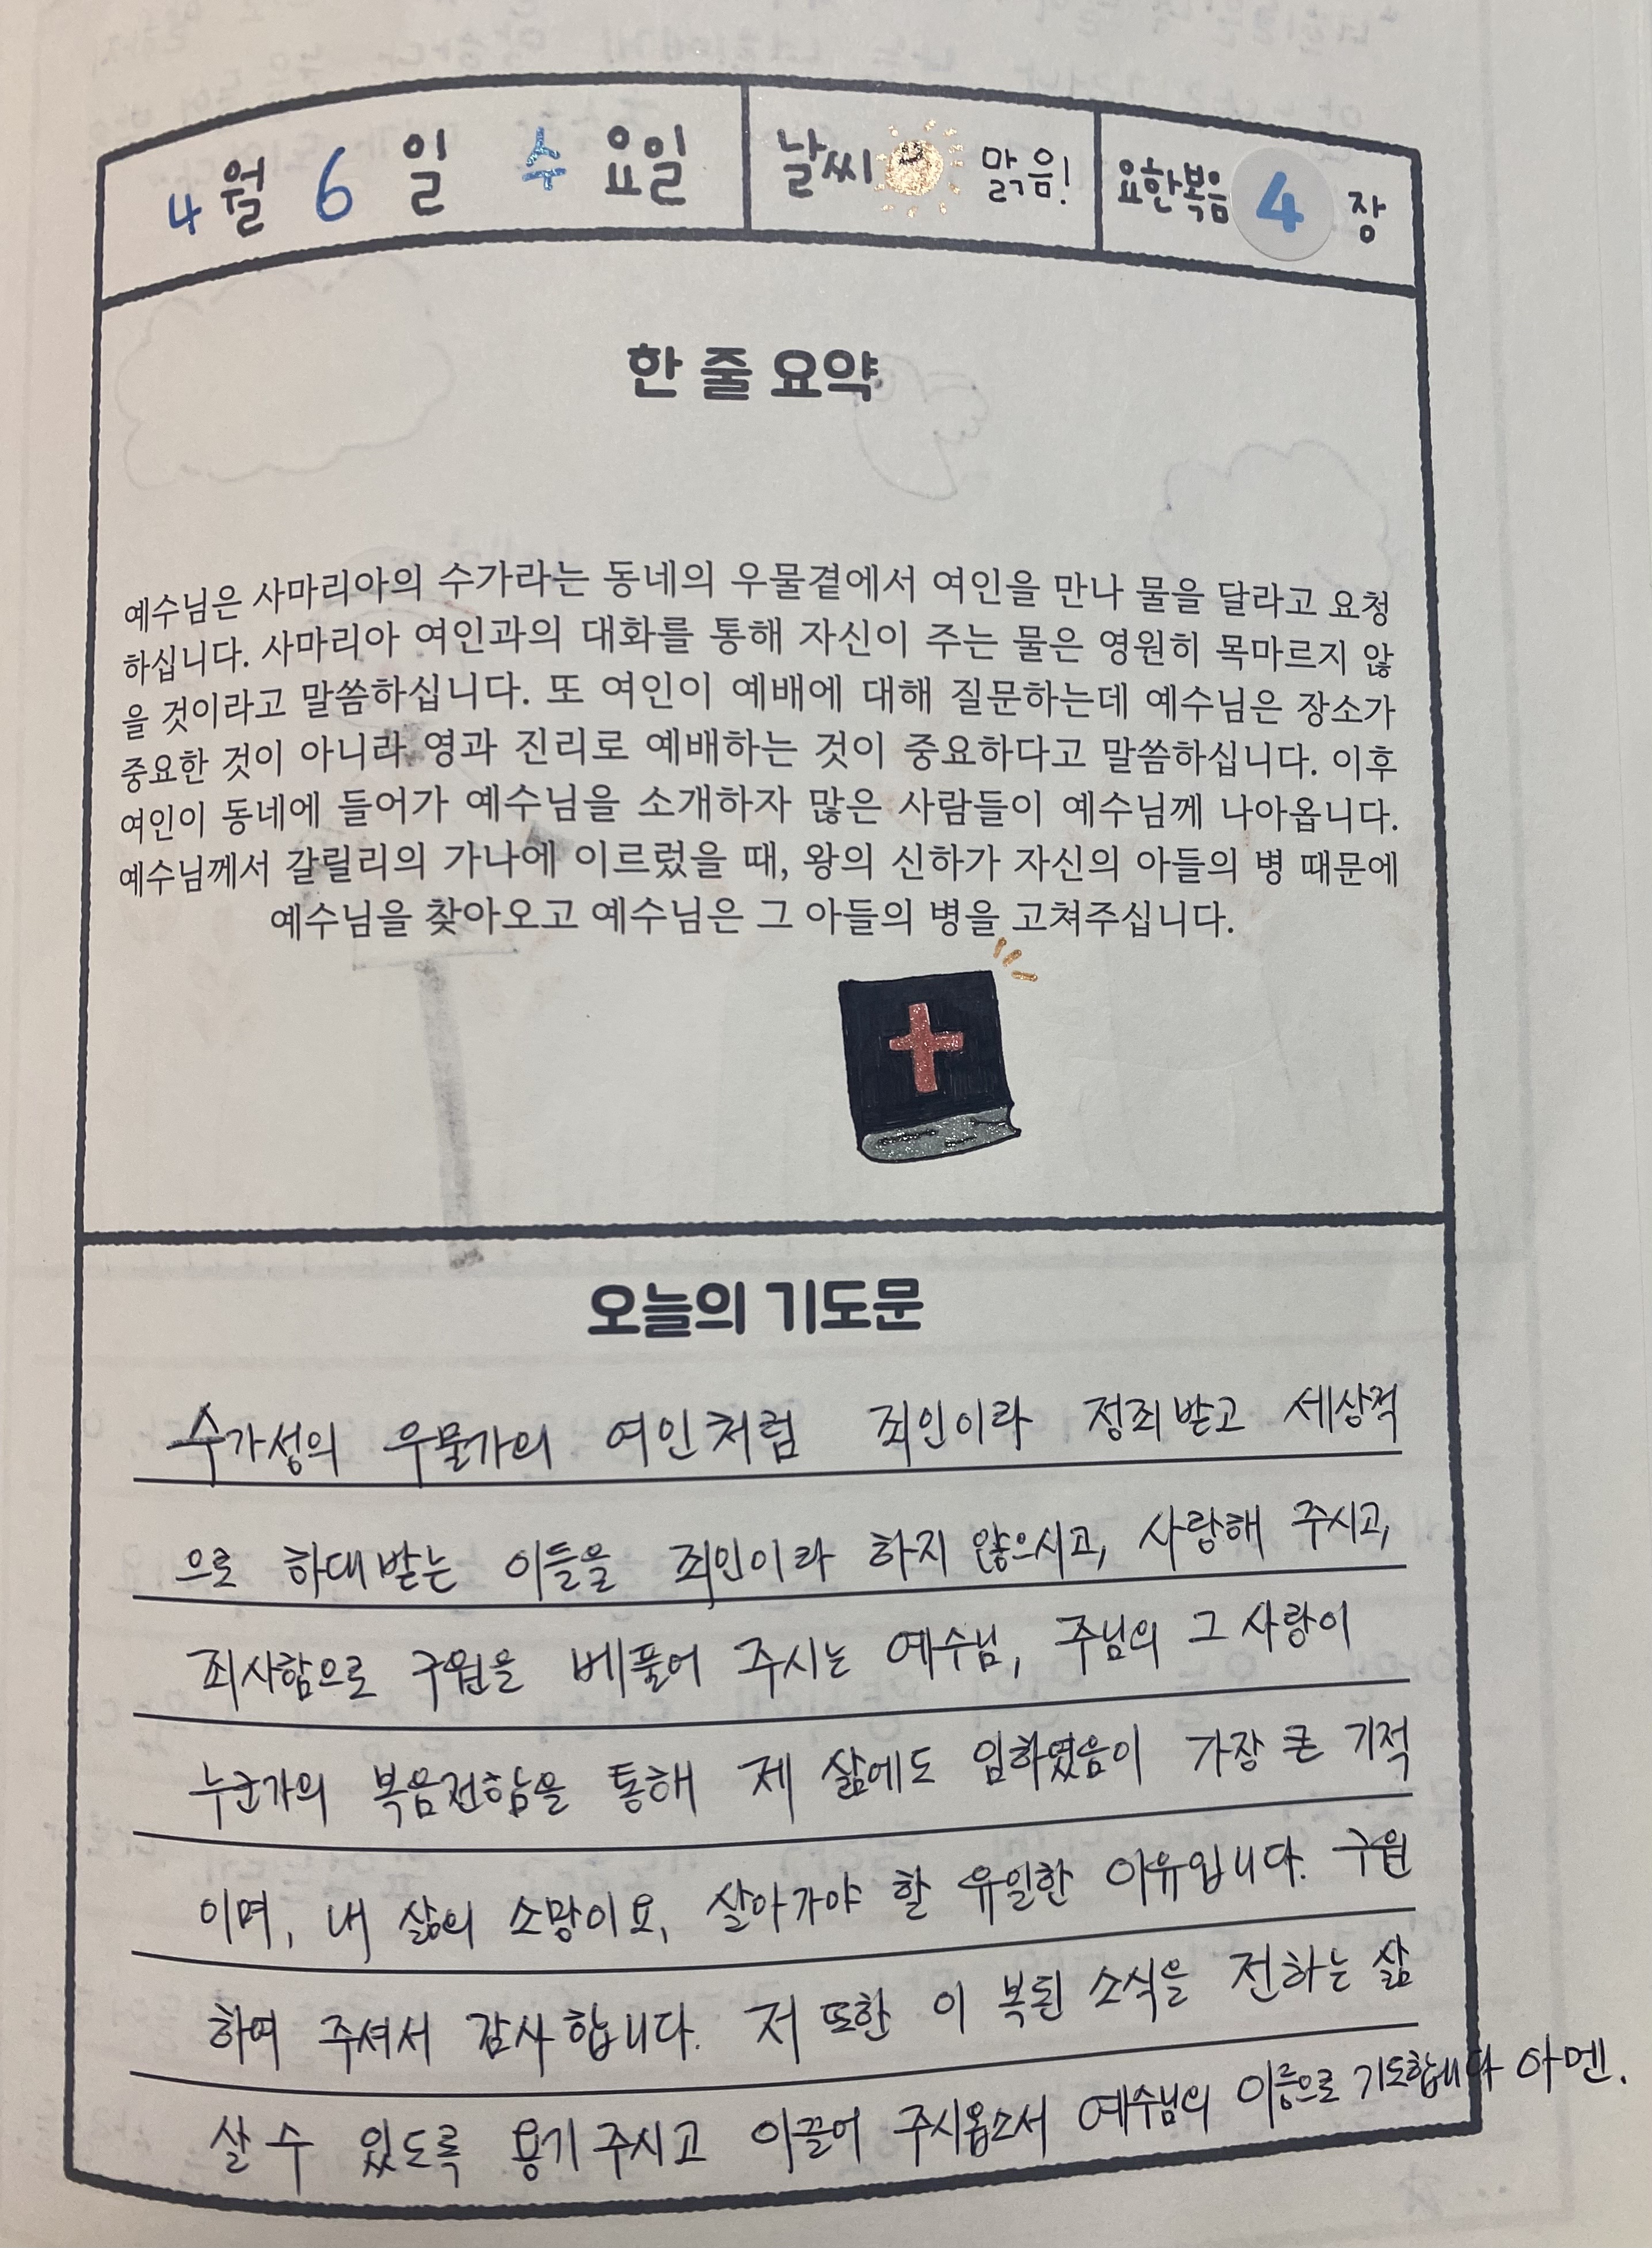 4월 6일 수요일 날씨 맑음! 요한복음 4장
한 줄 요약
예수님은 사마리아의 수가라는 동네의 우물곁에서 여인을 만나 물을 달라고 요청
하십니다. 사마리아 여인과의 대화를 통해 자신이 주는 물은 영원히 목마르지 않
을 것이라고 말씀하십니다. 또 여인이 예배에 대해 질문하는데 예수님은 장소가
중요한 것이 아니라 영과 진리로 예배하는 것이 중요하다고 말씀하십니다. 이후
여인이 동네에 들어가 예수님을 소개하자 많은 사람들이 예수님께 나아옵니다.
예수님께서 갈릴리의 가나에 이르렀을 때, 왕의 신하가 자신의 아들의 병 때문에
예수님을 찾아오고 예수님은 그 아들의 병을 고쳐주십니다.
오늘의 기도문
수가성의 우물가의 여인처럼 죄인이라 정죄받고 세상적
으로 하대받는 이들을 죄인이라 하지 않으시고, 사랑해 주시고,
죄사함으로 구원을 베풀어 주시는 예수님, 주님의 그 사랑이
누군가의 복음전함을 통해 제 삶에도 임하였음이 가장 큰 기적
이며, 내 삶의 소망이요, 살아가야 할 유일한 이유입니다. 구원
하여 주셔서 감사합니다. 저 또한 이 복된 소식을 전하는 삶
살 수 있도록 용기 주시고 이끌어 주시옵소서 예수님의 이름으로 기도합니다 아멘.